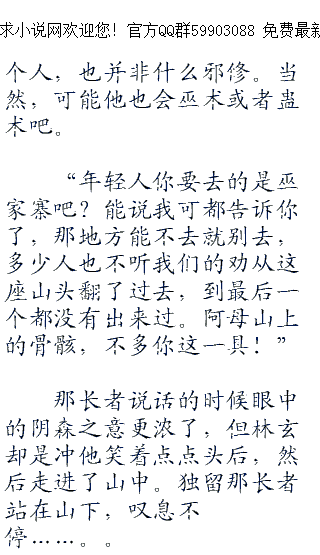 求小说网欢迎您！官方QQ群59903088 免费最新
个人，也并非什么邪修。当
然，可能他也会巫术或者蛊
术吧。
“年轻人你要去的是巫
家寨吧？能说我可都告诉你
了，那地方能不去就别去，
多少人也不听我们的劝从这
座山头翻了过去，到最后一
个都没有出来过。阿母山上
的骨骸，不多你这一具！”
那长者说话的时候眼中
的阴森之意更浓了，但林玄
却是冲他笑着点点头后，然
后走进了山中。独留那长者
站在山下，叹息不
停……。。